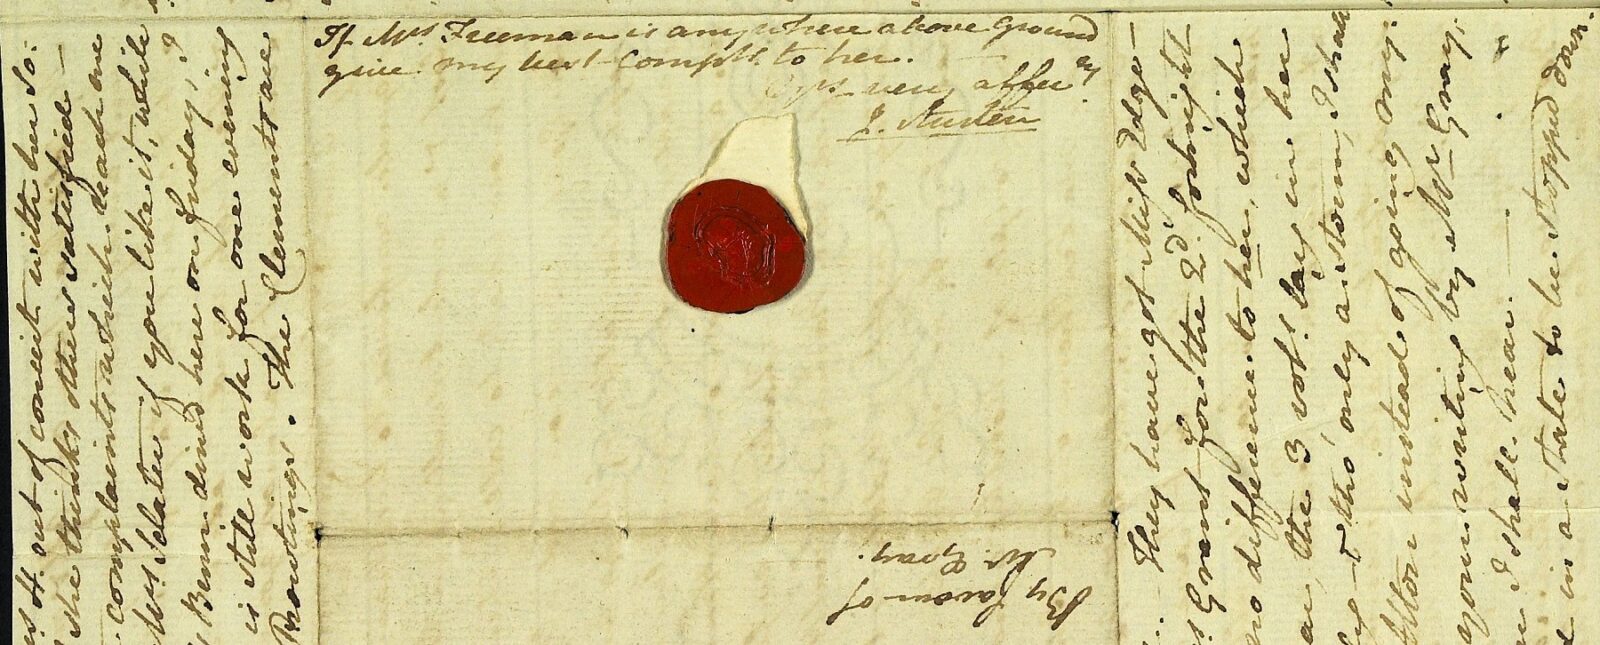 If Mrs. Freeman is anywhere above ground
give my best Complts. to her.
Yrs. very affec:ly
J. Austen
By favour of
Mr. Gray.
H. out of conceit with her So:
she thinks others satisfied—
complaints which reach one
Mrs. Sclater if you like it, while
Benn dined here on friday,
is still work for one evening
Prowtings. The Clements are
They have got Miss Edge—
Grant for the 2d. fortnight
no difference to her, which
the 3 vols. lay in her
only a storm, I shall
Alton instead of going
your writing by Mr. Gray.
I shall hear.
in a state to be stopped down.